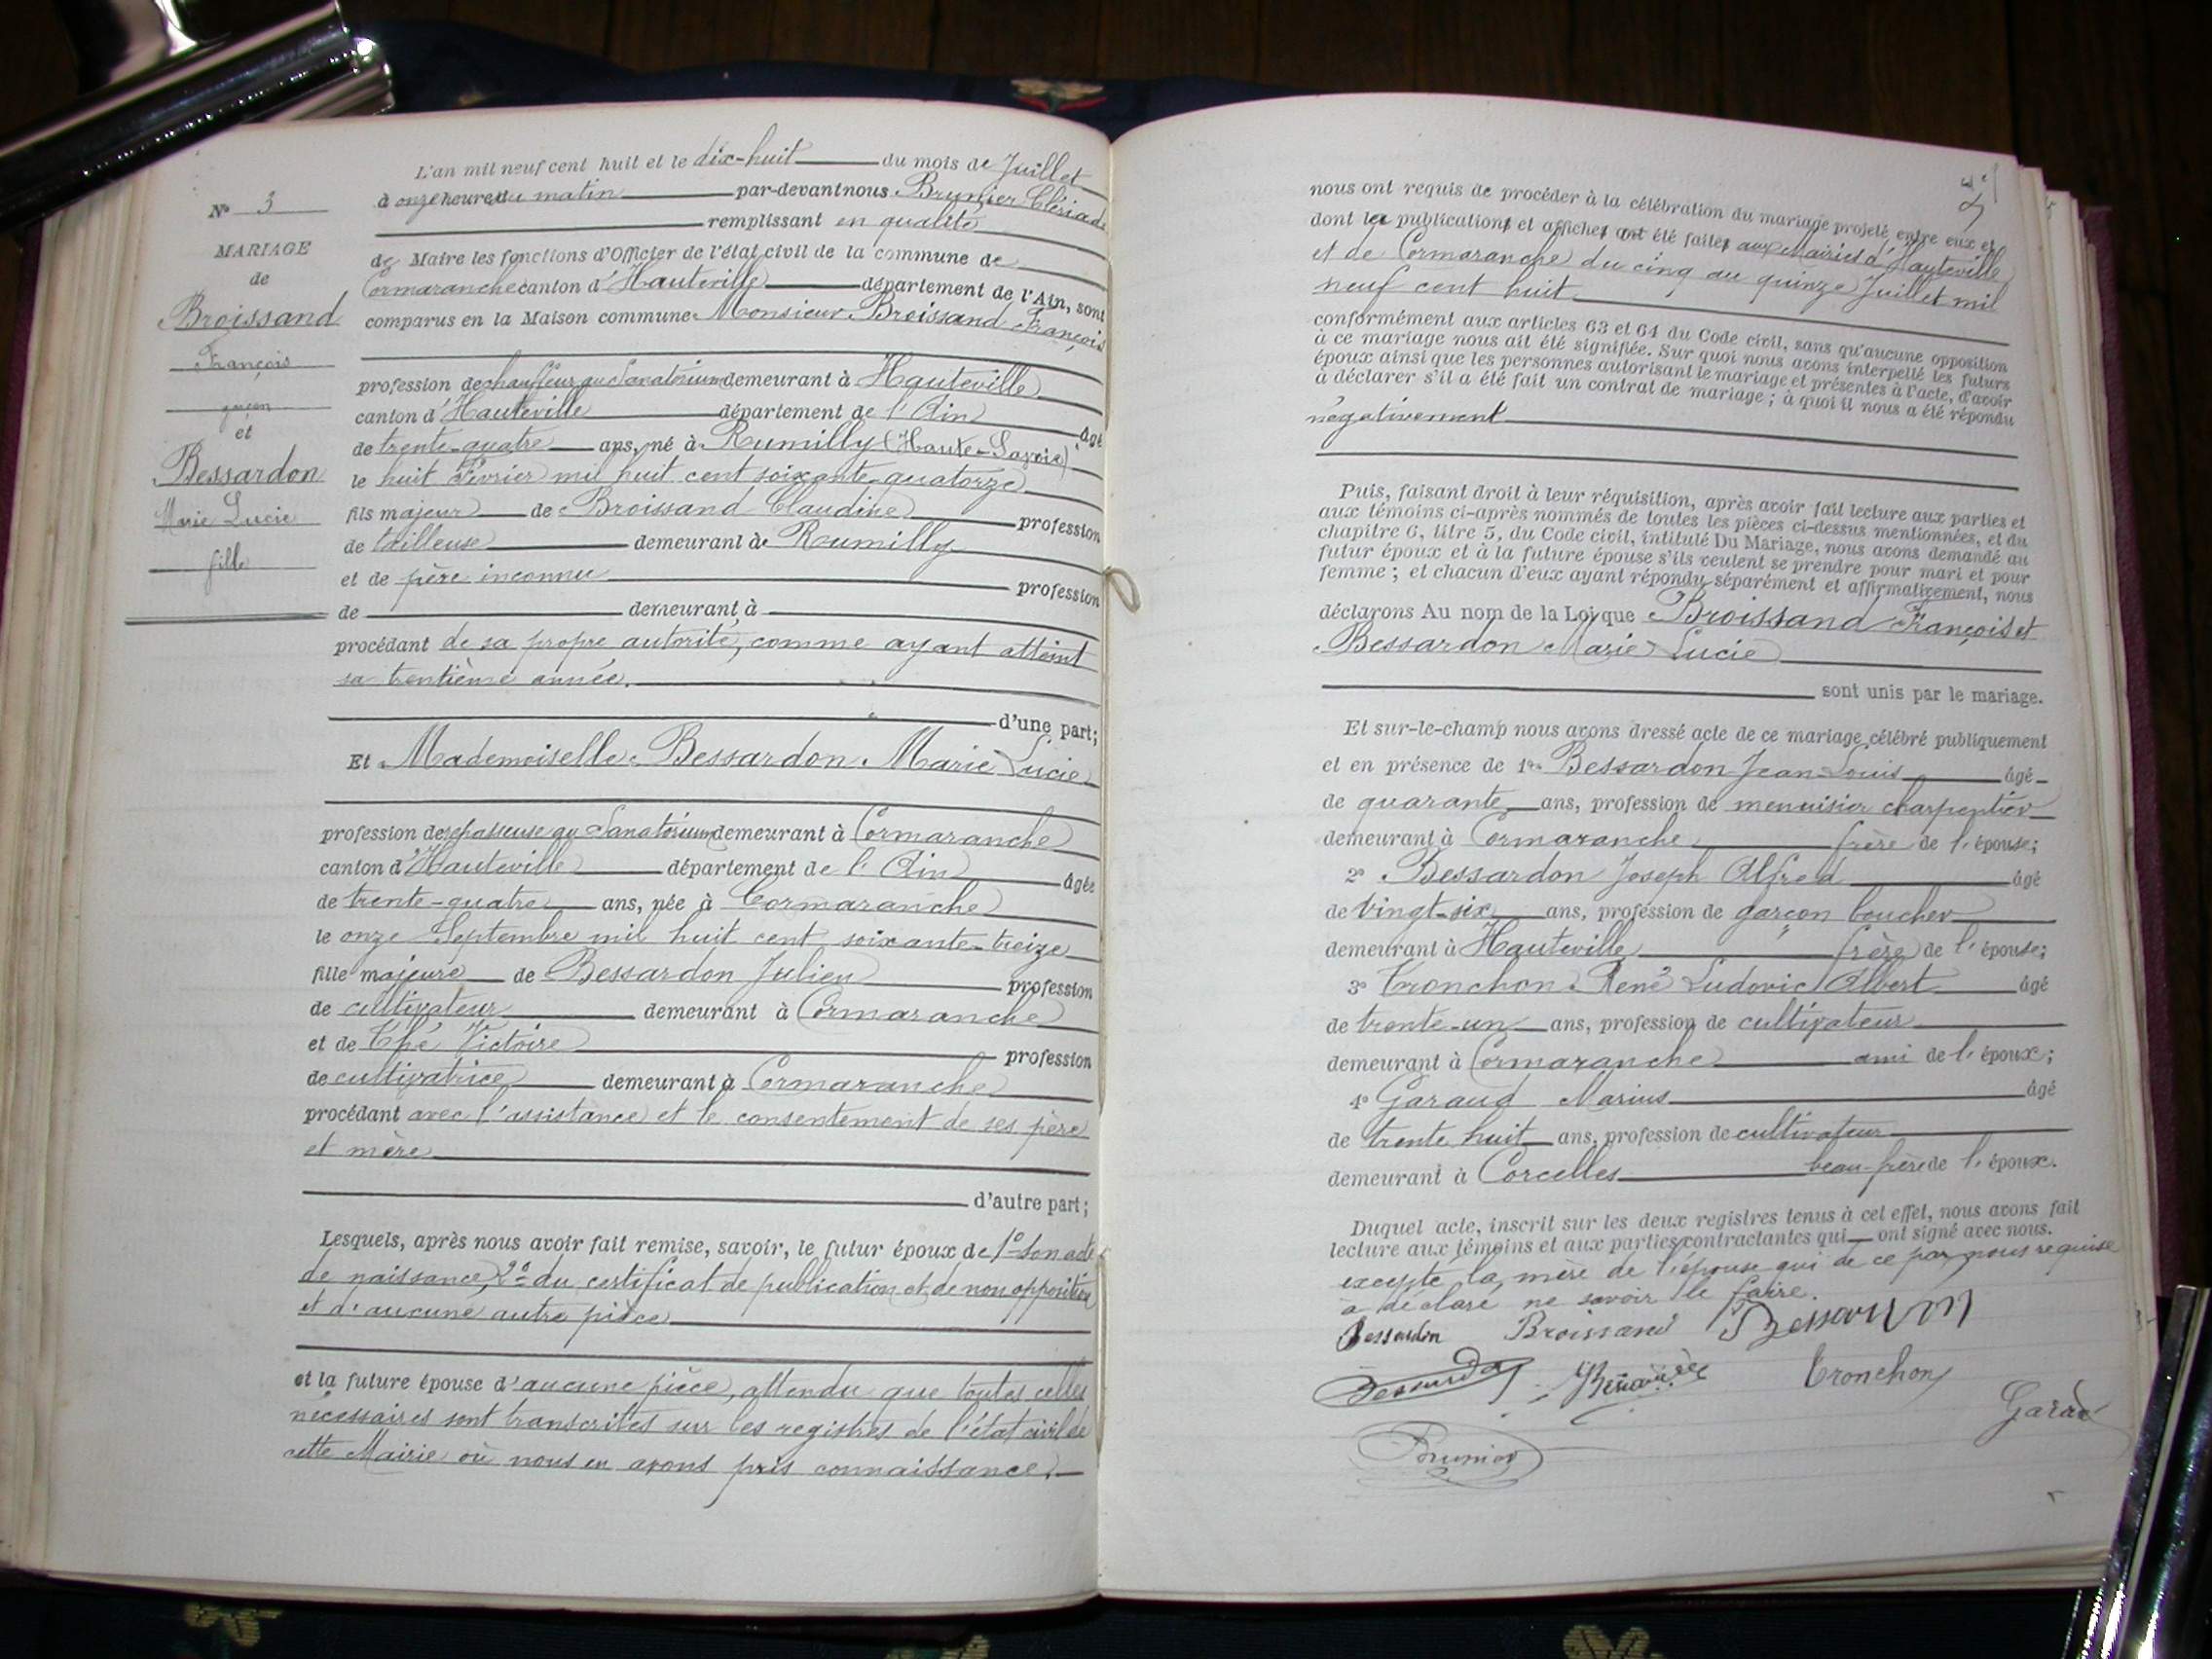 N° 3
MARIAGE
de
Broissand
François
garçon
et
Bessardon
Marie Lucie
fille
L'an mil neuf cent huit et le dix-huit du mois de Juillet
à onze heure du matin par-devant nous Brunier Clériade
remplissant en qualité
de Maire les fonctions d'Officier de l'état civil de la commune de
Cormaranche canton d'Hauteville département de l'Ain, sont
comparus en la Maison commune Monsieur Broissand François
profession de chauffeur au Sanatorium demeurant à Hauteville
canton d'Hauteville département de l'Ain âgé
de trente-quatre ans, né à Rumilly (Haute-Savoie)
le huit Février mil huit cent soixante-quatorze
fils majeur de Broissand Claudine profession
de tailleuse demeurant à Rumilly
et de père inconnu profession
de demeurant à
procédant de sa propre autorité, comme ayant atteint
sa trentième année.
d'une part;
Et Mademoiselle Bessardon Marie Lucie
profession de repasseuse au Sanatorium demeurant à Cormaranche
canton d'Hauteville département de l'Ain âgée
de trente-quatre ans, née à Cormaranche
le onze Septembre mil huit cent soixante-treize
fille majeure de Bessardon Julien profession
de cultivateur demeurant à Cormaranche
et de Thé Victoire profession
de cultivatrice demeurant à Cormaranche
procédant avec l'assistance et le consentement de ses père
et mère
d'autre part;
Lesquels, après nous avoir fait remise, savoir, le futur époux de 1° son acte
de naissance, 2° du certificat de publication et de non opposition
et d'aucune autre pièce
et la future épouse d'aucune pièce, attendu que toutes celles
nécessaires sont transcrites sur les registres de l'état civil de
cette Mairie où nous en avons pris connaissance.
nous ont requis de procéder à la célébration du mariage projeté entre eux et
dont les publications et affiches ont été faites aux Mairies d'Hauteville
et de Cormaranche du cinq au quinze Juillet mil
neuf cent huit
conformément aux articles 63 et 64 du Code civil, sans qu'aucune opposition
à ce mariage nous ait été signifiée. Sur quoi nous avons interpellé les futurs
époux ainsi que les personnes autorisant le mariage et présentes à l'acte, d'avoir
à déclarer s'il a été fait un contrat de mariage; à quoi il nous a été répondu
négativement
Puis, faisant droit à leur réquisition, après avoir fait lecture aux parties et
aux témoins ci-après nommés de toutes les pièces ci-dessus mentionnées, et du
chapitre 6, titre 5, du Code civil, intitulé Du Mariage, nous avons demandé au
futur époux et à la future épouse s'ils veulent se prendre pour mari et pour
femme; et chacun d'eux ayant répondu séparément et affirmativement, nous
déclarons Au nom de la Loi que Broissand François et
Bessardon Marie Lucie
sont unis par le mariage.
Et sur-le-champ nous avons dressé acte de ce mariage célébré publiquement
et en présence de 1° Bessardon Jean-Louis âgé
de quarante ans, profession de menuisier charpentier
demeurant à Cormaranche frère de l'épouse;
2° Bessardon Joseph Alfred âgé
de vingt-six ans, profession de garçon boucher
demeurant à Hauteville frère de l'épouse;
3° Tronchon René Ludovic Albert âgé
de trente-un ans, profession de cultivateur
demeurant à Cormaranche ami de l'époux;
4° Garaud Marius âgé
de trente huit ans, profession de cultivateur
demeurant à Corcelles beau-frère de l'époux.
Duquel acte, inscrit sur les deux registres tenus à cet effet, nous avons fait
lecture aux témoins et aux parties contractantes qui ont signé avec nous.
excepté la mère de l'épouse qui de ce par nous requise
a déclaré ne savoir le faire.
Bessardon Broissand
Bessardon Tronchon
Brunier